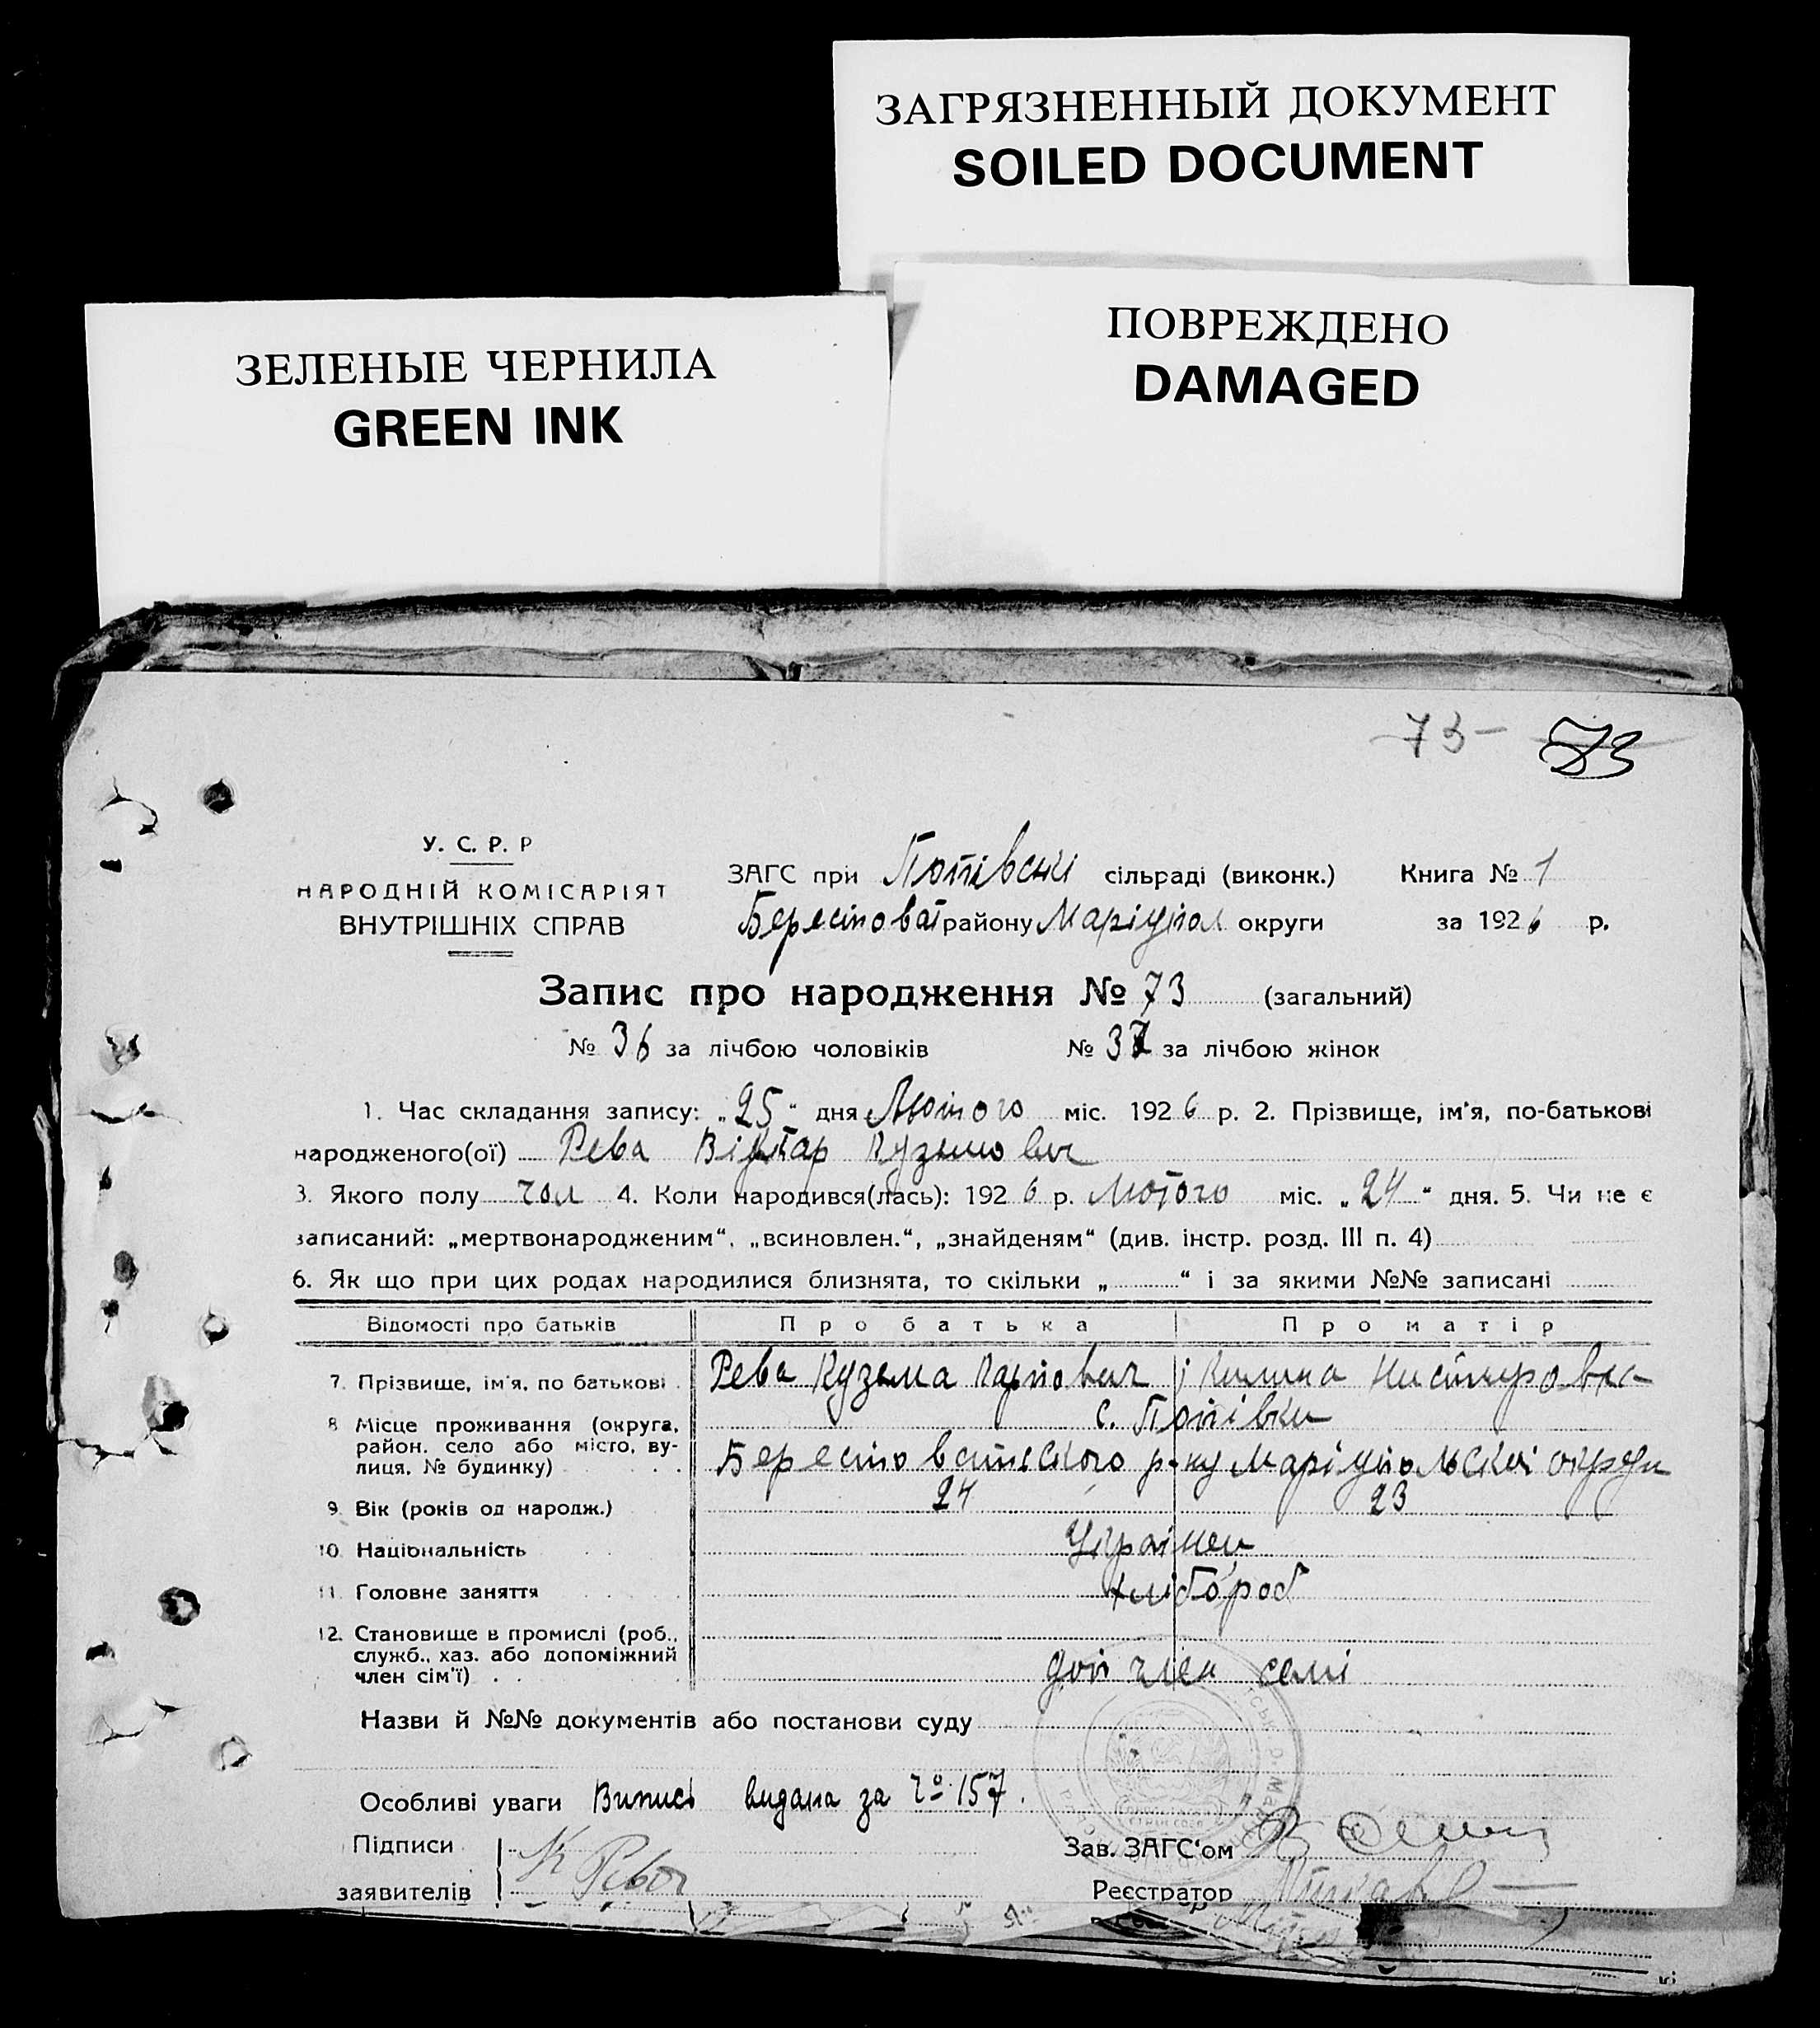 ЗАГРЯЗНЕННЫЙ ДОКУМЕНТ
SOILED DOCUMENT
ЗЕЛЕНЫЕ ЧЕРНИЛА
GREEN INK
ПОВРЕЖДЕНО
DAMAGED
73 73
У. С. Р. Р
НАРОДНІЙ КОМІСАРІЯТ
ВНУТРІШНІХ СПРАВ
ЗАГС при Попівські сільраді (виконк.) Книга № 1
Берестоват району Маріупол округи за 1926 р.
Запис про народження № 73 (загальний)
№ 36 за лічбою чоловіків № 37 за лічбою жінок
1. Час складання запису: „25“ дня Лютого міс. 1926 р. 2. Прізвище, ім'я, по-батькові
народженого(ої) Рева Віктар Кузьмович
3. Якого полу чол 4. Коли народився(лась): 1926 р. Лютого міс. „24“ дня. 5. Чи не є
записаний: „мертвонародженим“, „всиновлен.“, „знайденям“ (див. інстр. розд. III п. 4)
6. Як що при цих родах народилися близнята, то скільки „ “ і за якими №№ записані
Відомості про батьків Про батька Про матір
7. Прізвище, ім'я, по батькові Рева Кузьма Карпович і Килина
8 Місце проживання (округа, с. Попівки
район. село або місто, ву-
лиця, № будинку) Берестоватського р-ну Маріупольської округи
9. Вік (років од народж.) 24 23
10. Національність Українец
11. Головне заняття хлібороб
12. Становище в промислі (роб.,
служб., хаз. або допоміжний
член сім'ї) . . доп член семі
Назви й №№ документів або постанови суду
Особливі уваги Випись видана за № 157.
Підписи К Рева Зав. ЗАГС'ом
заявителів Реєстратор